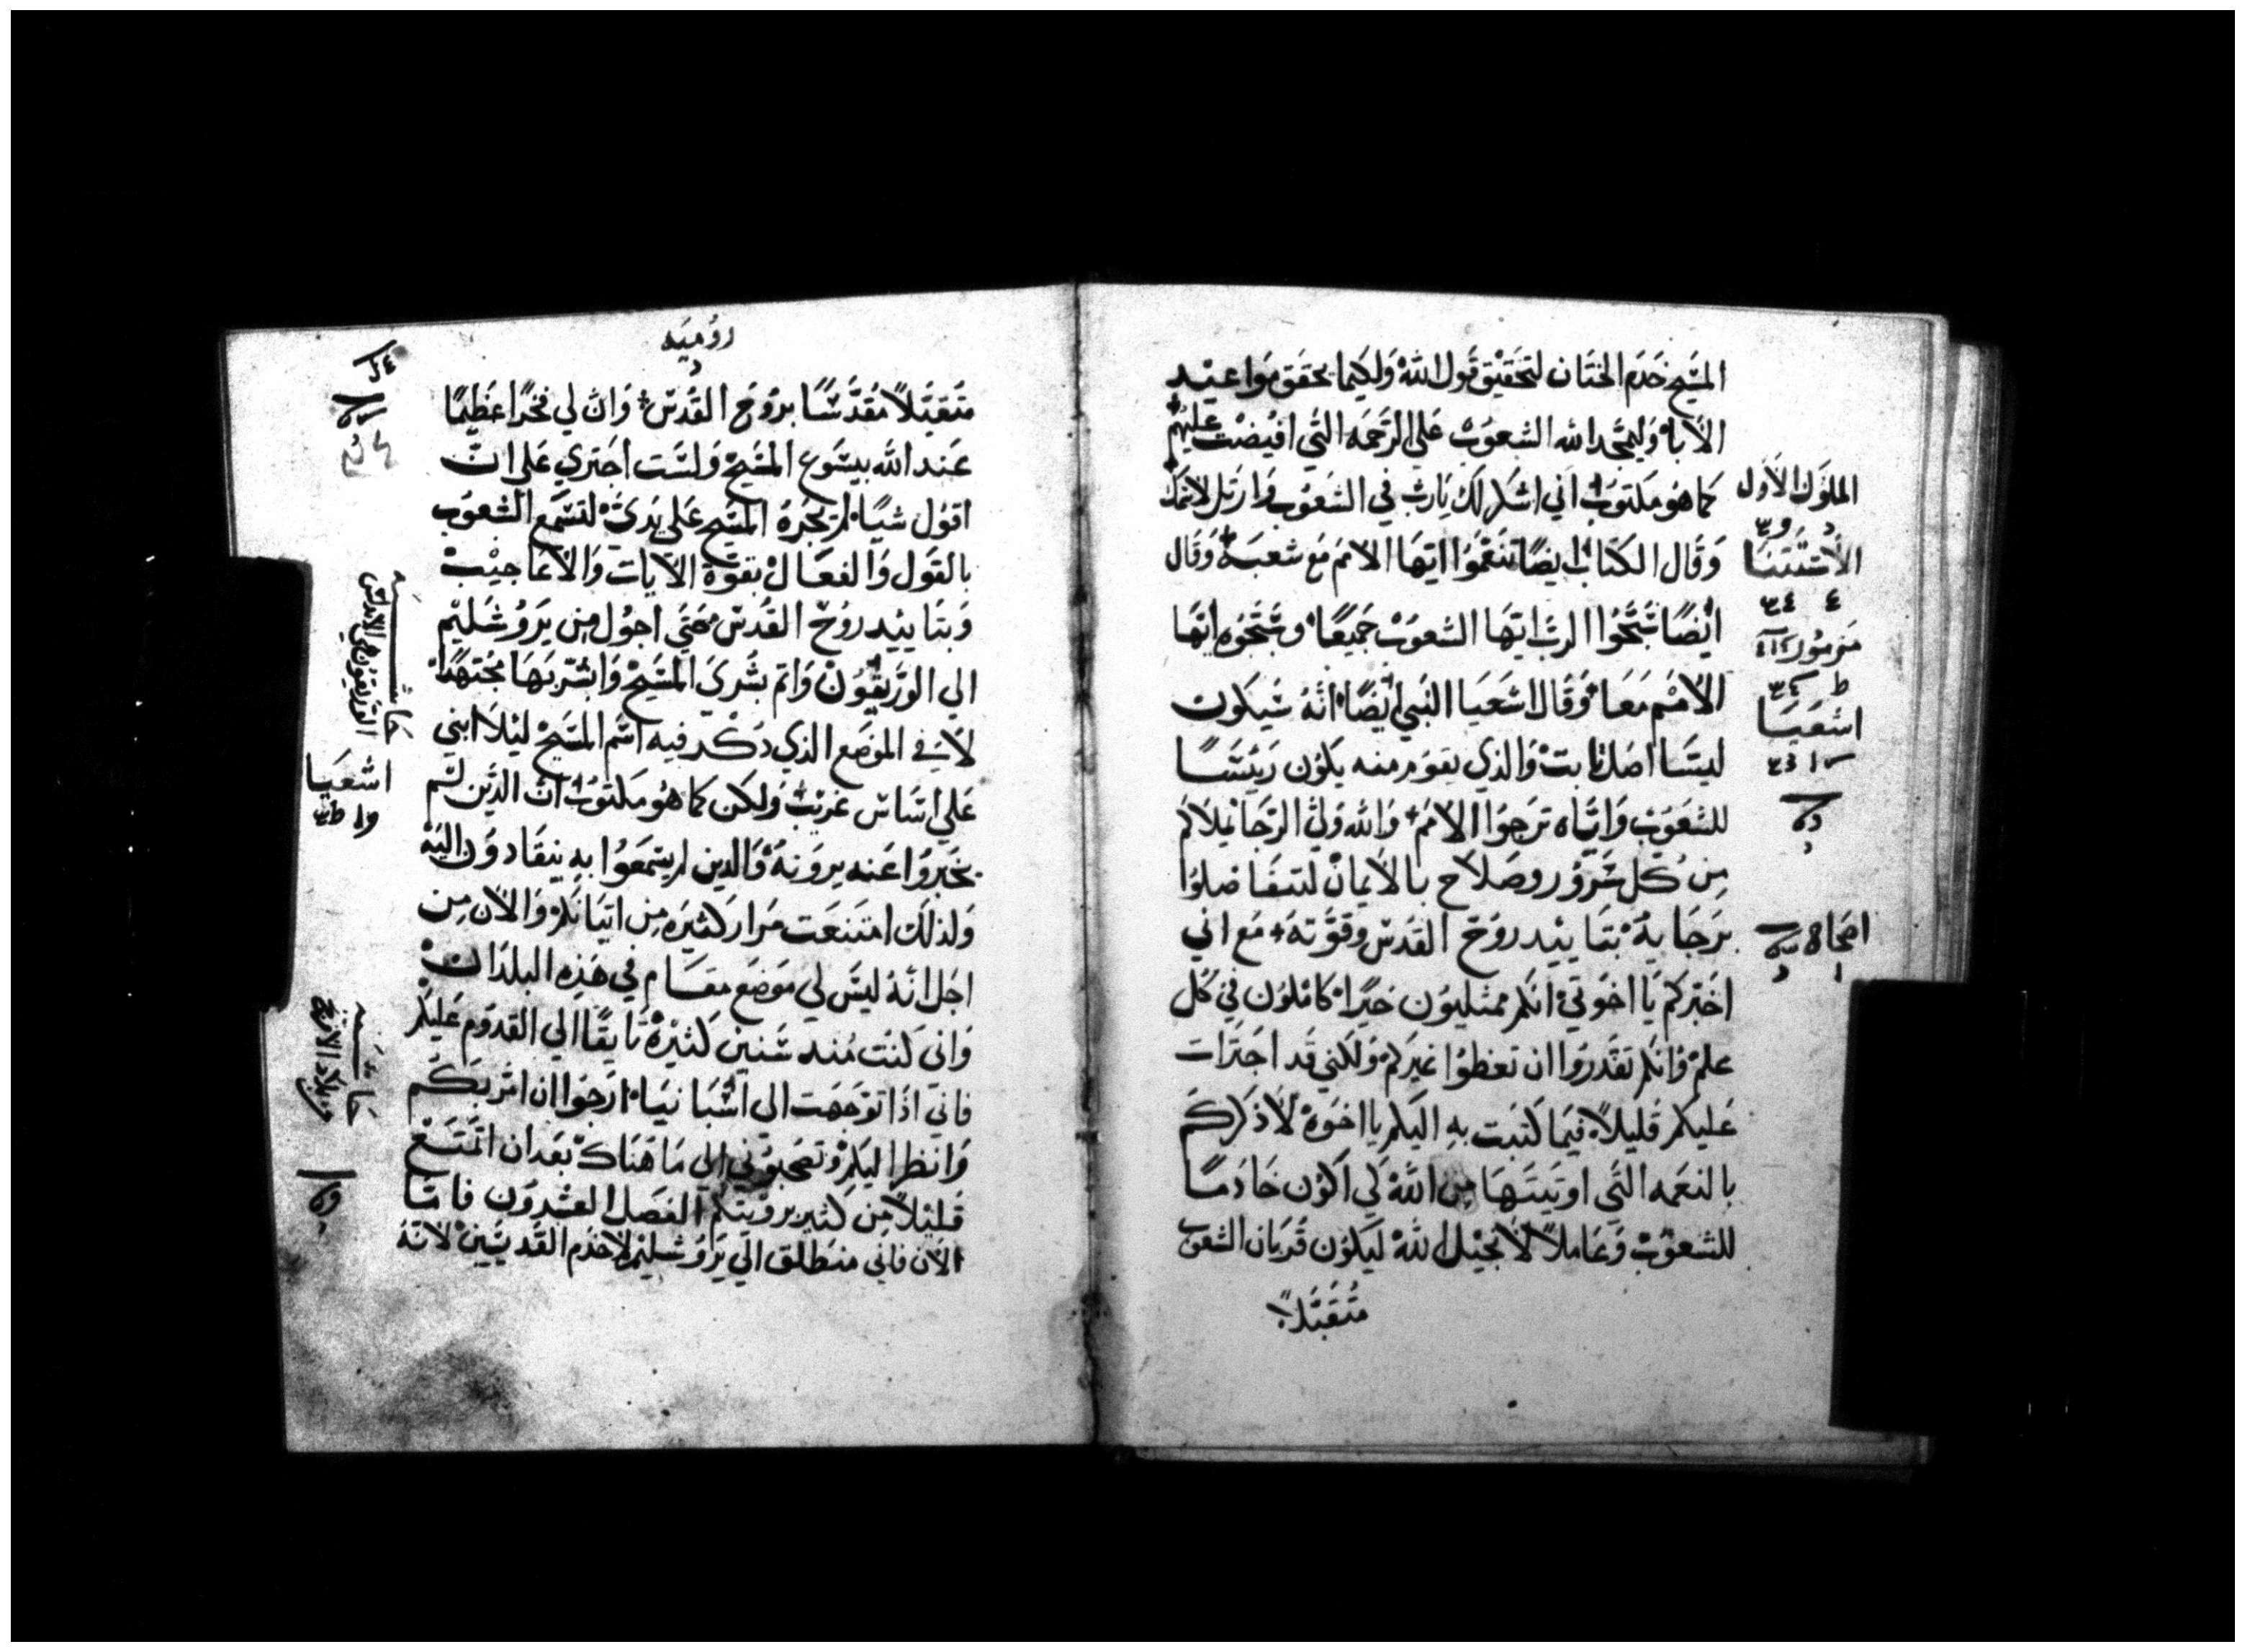 المسَيح خدَم الختَان لتحَقيْق قَول اللهْ وَلكيما يحقق مَواعيْد
الابَاْ وَليمجَد الله الشعوُبْ عَلى الرَحمَه التَي افيْضتْ عليْهم
كما هوُ مكتوبْ اني اشكر لك يَاربْ في الشعُوب وَارتل لاسمَك
وَقال الكتابْ ايضًا تنعَموُا ايتهَا الامَم مَع شعَبهْ وَقال
ايْضًا سَبَحُوا الربْ ايتهَا الشعوُبْ جَميعًا وسَبَحُوه ايتهَا
الامَْم مَعَا وَقال اشعَيَا النَبي ايْضًا انَهُ سَيكوُن
ليسَا اصَل ثابتْ وَالذي يقوم منه يكوُن رَيْسًَا
للشعُوب وَايَاه ترَجوا الامَم وَالله وَليْ الرَجَا يملاكم
مِن كل سَروُر وصَلاح بالايمانْ لتتفَاضلوُا
برَجَايهْ بتَاييْد روُح القدسْ وقوَته مَع اني
اخبَركم يَا اخوَتيْ انكم ممتليوُن خيرًا كاملوُن في كل
علمْ وَانكم تقَدروُا ان تعظوُا غيرَكمْ وَلكني قد اجترات
عَليكم قليلاً فيمَا كتبَت بهِ اليَكم يا اخوَهْ لاذكرَكم
بالنعَمه التَي اوتيَتهَا مِن اللهْ كي اكوُن خَادمًا
للشعوُبْ وَعَاملاً لانجيْل اللهْ ليَكوُن قربَان الشعوب
مُتَقبَلاً
الملوُك الاوَل
الاستثنَا
مَزموُر
اشعَيَا
اصحاح
روُميَه
متَقبَلاً مُقدَسًا بروُح القُدسْ وَان لي فخرًا عظيمًا
عَند الله بيسَوع المسَيحْ وَلسَت اجتري عَلى انْ
اقوُل شيًا لم يجُرهْ المسَيح عَلى يَديَْ لتسَمع الشعُوب
بالقَول وَالفعَالْ بقوَة الايَات وَالاعَاجيْبْ
وَبتَاييْد روُح القُدسْ حَتي اجوُل مِن يرَوُشَليْم
الي الورَيقوُنْ وَاتم بشرَي المسَيحْ وَابشَر بهَا مجتَهدًا
لا في الموَضع الذي ذكر فيه اسَم المسَيحْ ليْلا ابني
عَلي اسَاسْ غريبْ وَلكن كما هوُ مكتوبْ انْ الذيَن لم
يخبَروُا عَنه يروَنهُ وَالذين لم يسَمَعوُا بهِ ينقَادوُن اليَه
وَلذلك امتنعَت مرَار كثيرَه مِن اتيَانكم وَالان مِن
اجل انَهُ ليسَ لي موَضع مقَام في هَذِه البلدَانْ
وَاني كنتْ مُند سَنين كثيرَهْ تَايقًا الي القدوُم عَليكم
فانيَ اذَا توَجَهت الي اسَْبَانيَا ارَجوُا ان امُر بكُم
وَانظر اليكمْ وَتصَحبَوُني الي مَا هنَاكْ بعَد ان اتمتعَْ
قليْلاً مِن كثير برؤيتكم الفصَل العشروُن فامَا
الان فاني منطلق الي يَروُشليْم لاخدَم القَديسَينْ لانَهُ
حَاشَيه
اشعيَا
حَاشَيه